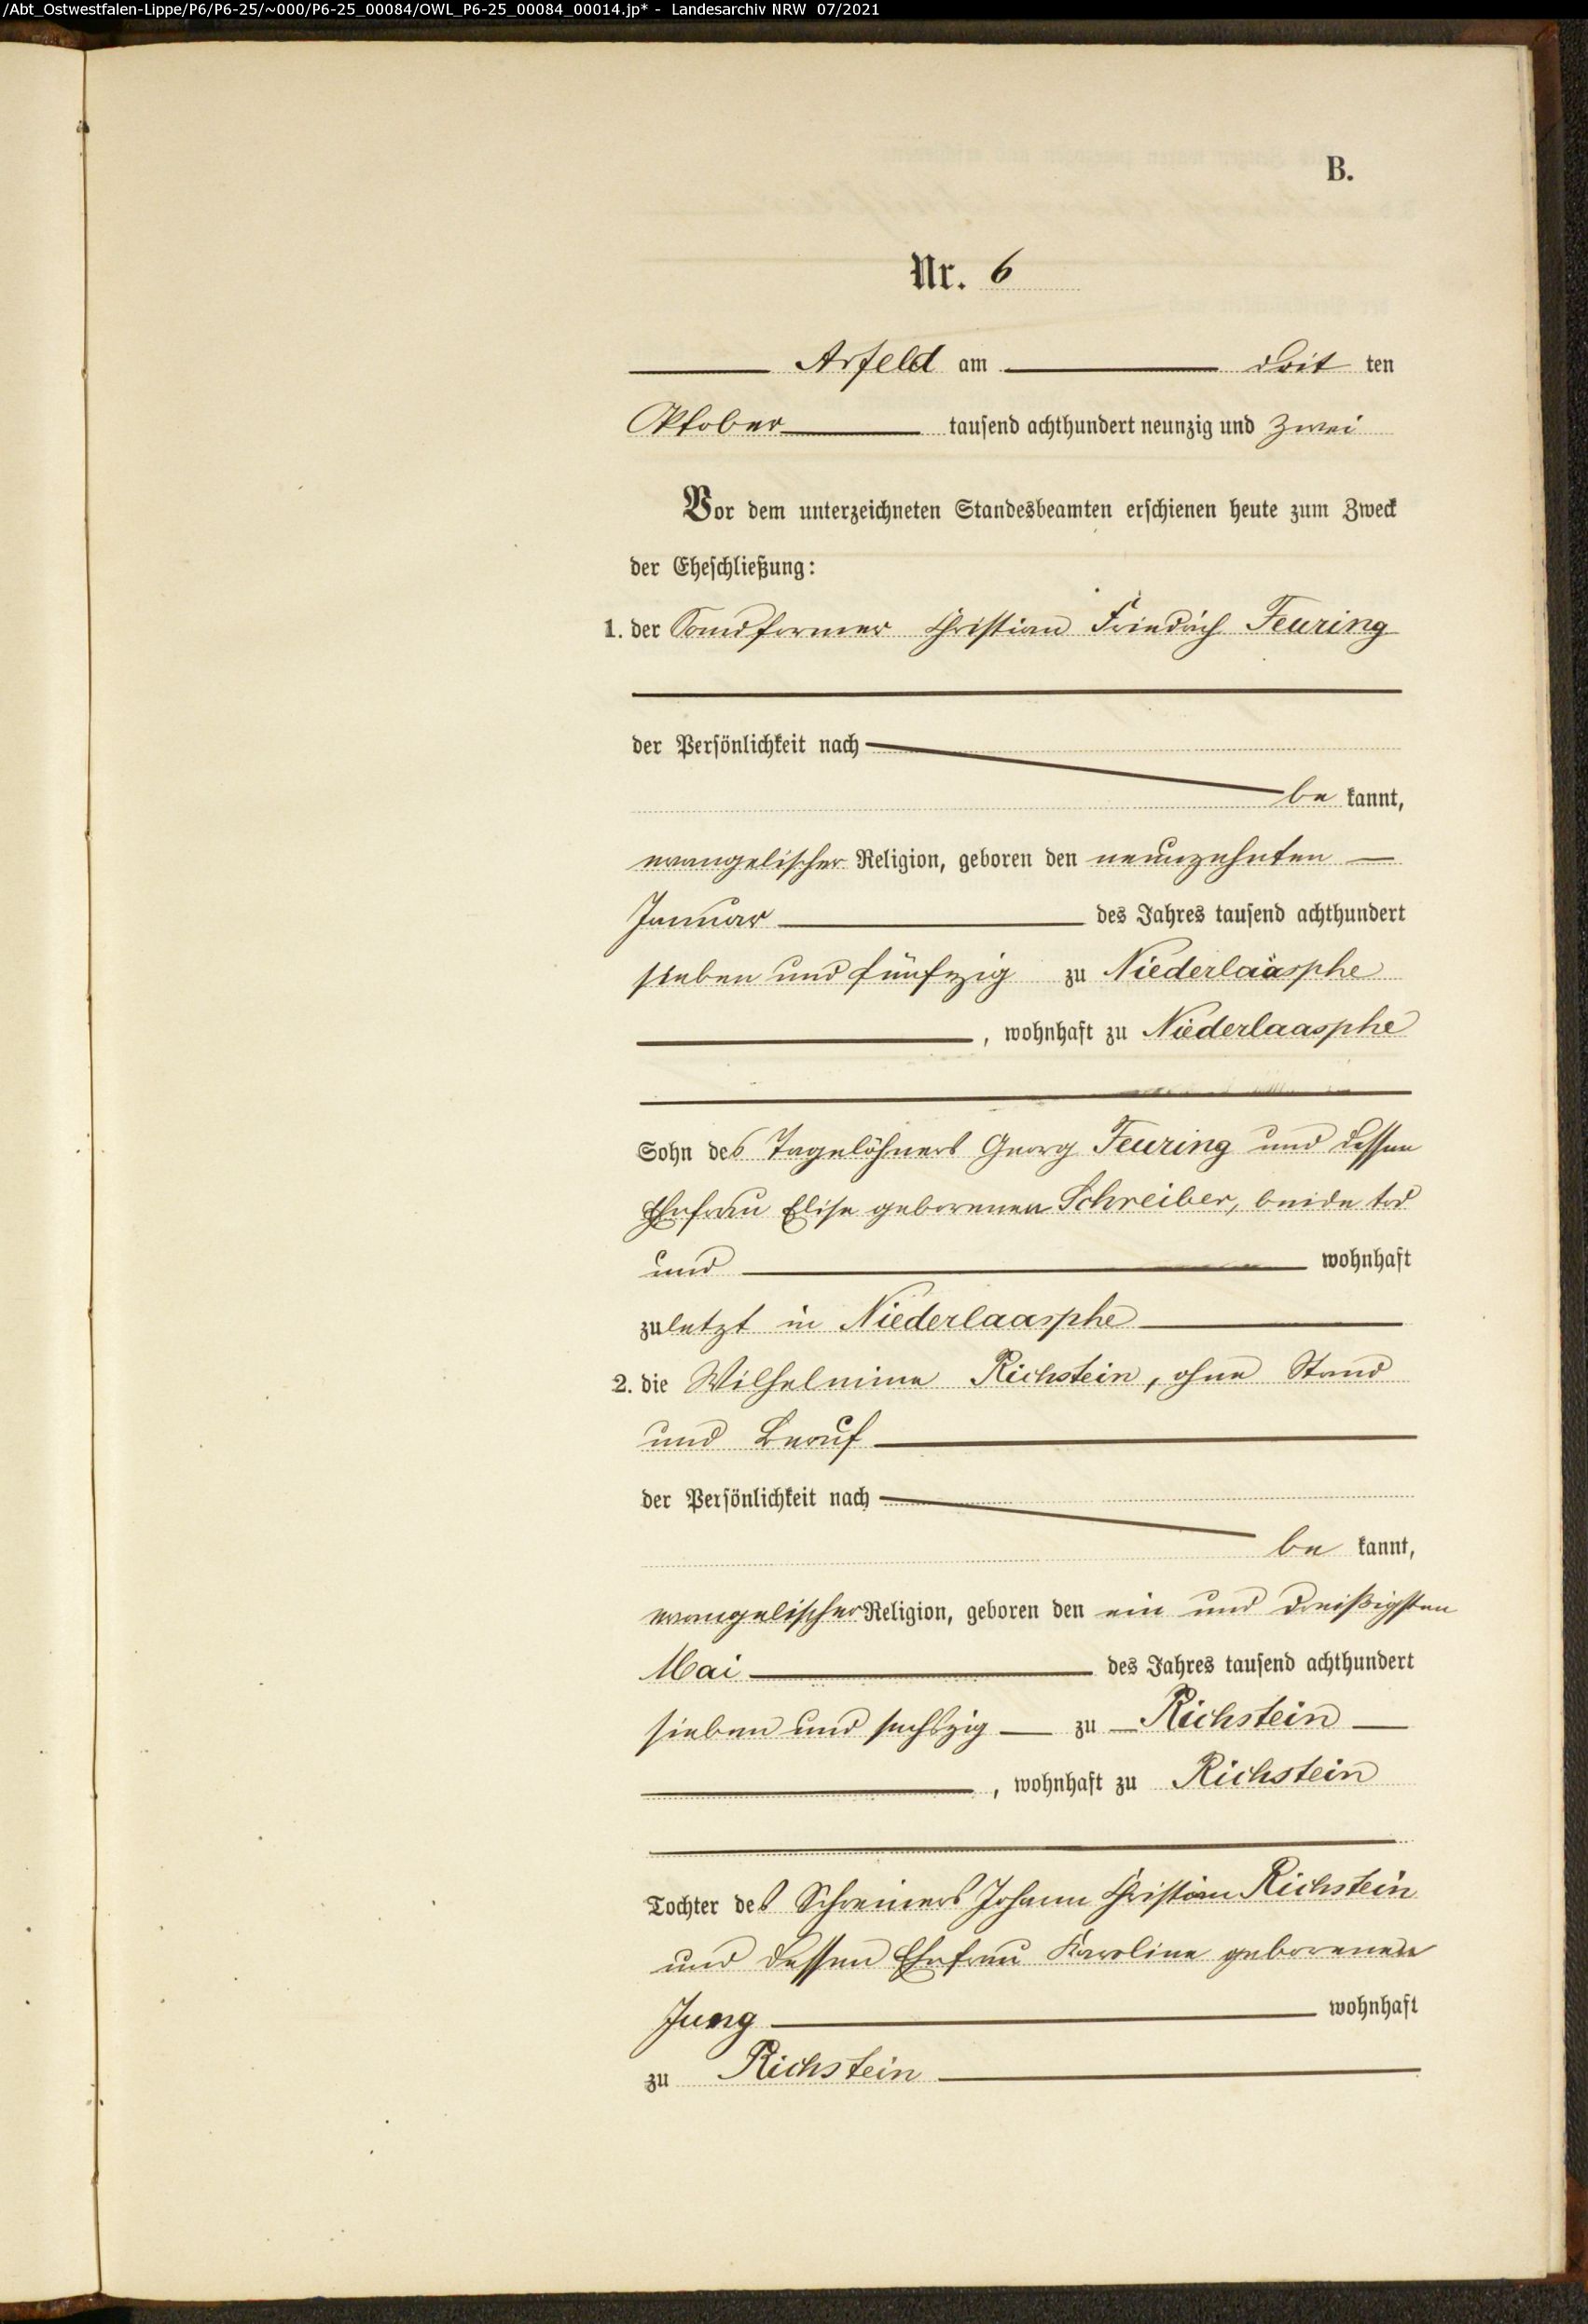 /Abt_Ostwestfalen-Lippe/P6/P6-25/~000/P6-25_00084/OWL_P6-25_00084_00014.jp* - Landesarchiv NRW 07/2021
B.
Nr. 6
Arfeld am drit ten
Oktober tausend achthundert neunzig und zwei
Vor dem unterzeichneten Standesbeamten erschienen heute zum Zweck
der Eheschließung:
1. der Sandformer Christian Friedrich Feuring
der Persönlichkeit nach
be kannt,
evangelischer Religion, geboren den neunzehnten
Januar des Jahres tausend achthundert
sieben und fünfzig zu Niederlaasphe
, wohnhaft zu Niederlaasphe
Sohn des Tagelöhners Georg Feuring und dessen
Ehefrau Elise geborenen Schreiber, beide tod
und wohnhaft
zuletzt in Niederlaasphe
2. die Wilhelmine Richstein, ohne Stand
und Beruf
der Persönlichkeit nach
be kannt,
evangelischer Religion, geboren den ein und dreißigsten
Mai des Jahres tausend achthundert
sieben und sechszig zu Richstein
, wohnhaft zu Richstein
Tochter des Schreiners Johann Christian Richstein
und dessen Ehefrau Karoline geborenen
Jung wohnhaft
zu Richstein